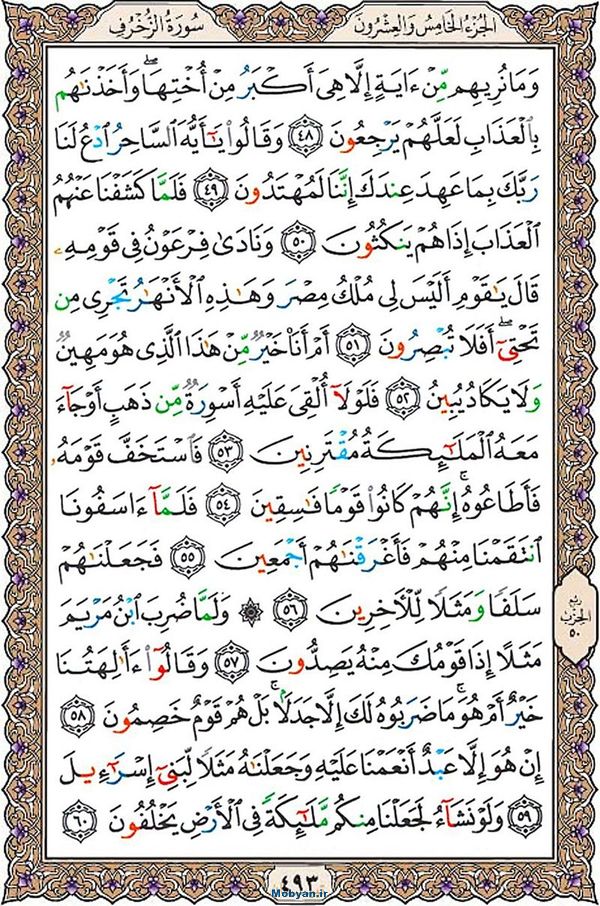 الجزء الخامس والعشرون
سورة الزخرف
وَمَا نُرِيهِم مِّنْ ءَايَةٍ إِلَّا هِىَ أَكْبَرُ مِنْ أُخْتِهَا ۖ وَأَخَذْنَٰهُم
بِٱلْعَذَابِ لَعَلَّهُمْ يَرْجِعُونَ ٤٨ وَقَالُوا۟ يَٰٓأَيُّهَ ٱلسَّاحِرُ ٱدْعُ لَنَا
رَبَّكَ بِمَا عَهِدَ عِندَكَ إِنَّنَا لَمُهْتَدُونَ ٤٩ فَلَمَّا كَشَفْنَا عَنْهُمُ
ٱلْعَذَابَ إِذَا هُمْ يَنكُثُونَ ٥٠ وَنَادَىٰ فِرْعَوْنُ فِى قَوْمِهِۦ
قَالَ يَٰقَوْمِ أَلَيْسَ لِى مُلْكُ مِصْرَ وَهَٰذِهِ ٱلْأَنْهَٰرُ تَجْرِى مِن
تَحْتِىٓ ۖ أَفَلَا تُبْصِرُونَ ٥١ أَمْ أَنَا۠ خَيْرٌ مِّنْ هَٰذَا ٱلَّذِى هُوَ مَهِينٌ
وَلَا يَكَادُ يُبِينُ ٥٢ فَلَوْلَآ أُلْقِىَ عَلَيْهِ أَسْوِرَةٌ مِّن ذَهَبٍ أَوْ جَآءَ
مَعَهُ ٱلْمَلَٰٓئِكَةُ مُقْتَرِنِينَ ٥٣ فَٱسْتَخَفَّ قَوْمَهُۥ
فَأَطَاعُوهُ ۚ إِنَّهُمْ كَانُوا۟ قَوْمًا فَٰسِقِينَ ٥٤ فَلَمَّآ ءَاسَفُونَا
ٱنتَقَمْنَا مِنْهُمْ فَأَغْرَقْنَٰهُمْ أَجْمَعِينَ ٥٥ فَجَعَلْنَٰهُمْ
سَلَفًا وَمَثَلًا لِّلْءَاخِرِينَ ٥٦ ۞ وَلَمَّا ضُرِبَ ٱبْنُ مَرْيَمَ
مَثَلًا إِذَا قَوْمُكَ مِنْهُ يَصِدُّونَ ٥٧ وَقَالُوٓا۟ ءَأَٰلِهَتُنَا
خَيْرٌ أَمْ هُوَ ۚ مَا ضَرَبُوهُ لَكَ إِلَّا جَدَلًۢا ۚ بَلْ هُمْ قَوْمٌ خَصِمُونَ ٥٨
إِنْ هُوَ إِلَّا عَبْدٌ أَنْعَمْنَا عَلَيْهِ وَجَعَلْنَٰهُ مَثَلًا لِّبَنِىٓ إِسْرَٰٓءِيلَ
٥٩ وَلَوْ نَشَآءُ لَجَعَلْنَا مِنكُم مَّلَٰٓئِكَةً فِى ٱلْأَرْضِ يَخْلُفُونَ ٦٠
ربع
الحزب
٥٠
٤٩٣
Mobyan.ir